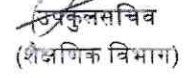 (उपकुलसचिव
(शैक्षणिक विभाग)